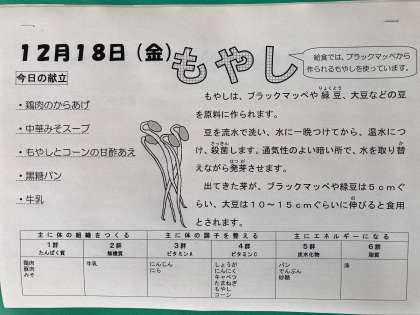 12月18日（金）
もやし
給食では、ブラックマッペから
作られるもやしを使っています。
今日の献立
・鶏肉のからあげ
・中華みそスープ
・もやしとコーンの甘酢あえ
・黒糖パン
・牛乳
もやしは、ブラックマッペや緑豆、大豆などの豆
を原料に作られます。
豆を流水で洗い、水に一晩つけてから、温水につ
け、殺菌します。通気性のよい暗い所で、水を取り替
えながら発芽させます。
出てきた芽が、ブラックマッペや緑豆は５ｃｍぐ
らい、大豆は１０～１５ｃｍぐらいに伸びると食用
とされます。
主に体の組織をつくる 主に体の調子を整える 主にエネルギーになる
1群 2群 3群 4群 5群 6群
たんぱく質 無機質 ビタミンA ビタミンC 炭水化物 脂質
鶏肉 牛乳 にんじん しょうが パン 油
豚肉 にら にんにく でんぷん
みそ キャベツ 砂糖
たまねぎ
もやし
コーン